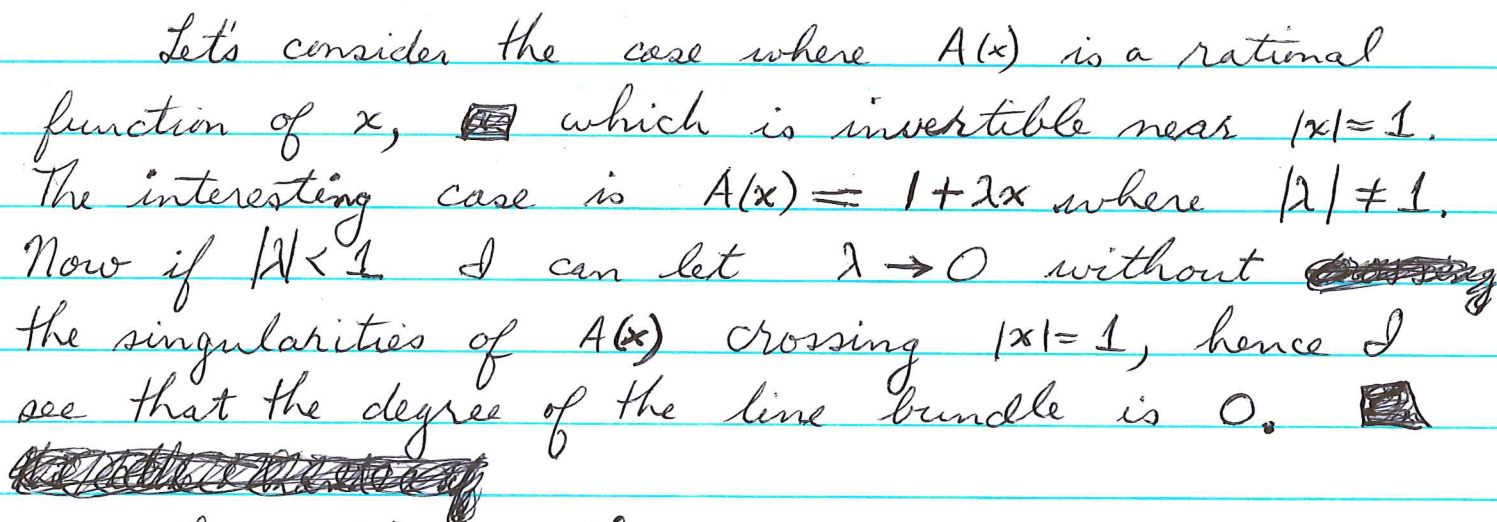 Let's consider the case where A(x) is a rational
function of x, which is invertible near |x|=1.
The interesting case is A(x) = 1+λx where |λ| ≠ 1.
Now if |λ|<1 I can let λ → 0 without
the singularities of A(x) crossing |x|=1, hence I
see that the degree of the line bundle is 0.